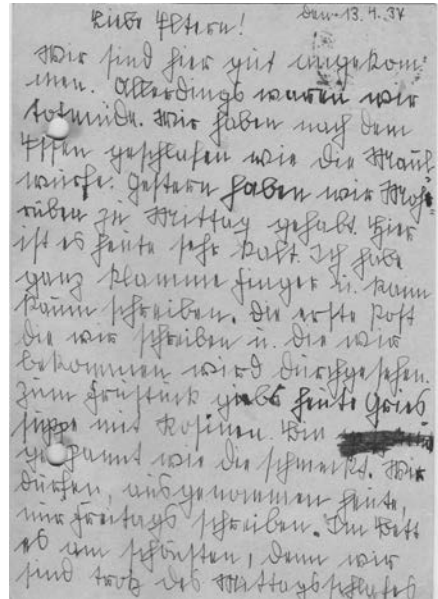 den 13. 4. 34
Liebe Eltern!
Wir sind hier gut angekom-
men. Allerdings waren wir
totmüde. Wir haben nach dem
Essen geschlafen wie die Maul-
würfe. Gestern haben wir Mohr-
rüben zu Mittag gehabt. Hier
ist es heute sehr kalt. Ich habe
ganz klamme Finger u. kann
kaum schreiben. Die erste Post
die wir schreiben u. die wir
bekommen wird durchgesehen.
Zum Frühstück giebs heute Gries
suppe mit Rosinen. Bin
gespannt wie die schmeckt. Wir
dürfen, ausgenommen heute,
nur Freitags schreiben. Im Bett
es am schönsten, denn wir
sind trotz des Mittagsschlafes